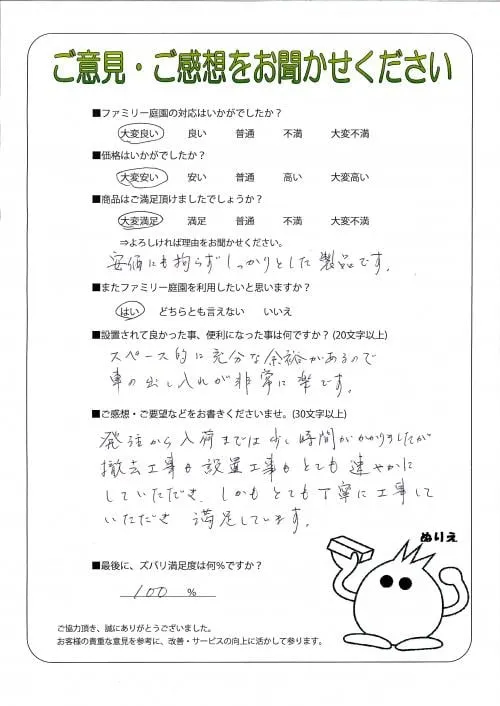 ご意見・ご感想をお聞かせください
■ファミリー庭園の対応はいかがでしたか？
大変良い 良い 普通 不満 大変不満
■価格はいかがでしたか？
大変安い 安い 普通 高い 大変高い
■商品はご満足頂けましたでしょうか？
大変満足 満足 普通 不満 大変不満
⇒よろしければ理由をお聞かせください。
安価にも拘らずしっかりとした製品です。
■またファミリー庭園を利用したいと思いますか？
はい どちらとも言えない いいえ
■設置されて良かった事、便利になった事は何ですか？(20文字以上)
スペース的に充分な余裕があるので
車の出し入れが非常に楽です。
■ご感想・ご要望などをお書きくださいませ。(30文字以上)
発注から入荷までは少し時間がかかりましたが
撤去工事も設置工事もとても速やかに
していただき、しかもとても丁寧に工事して
いただき 満足しています。
ぬりえ
■最後に、ズバリ満足度は何％ですか？
100 %
ご協力頂き、誠にありがとうございました。
お客様の貴重な意見を参考に、改善・サービスの向上に活かして参ります。